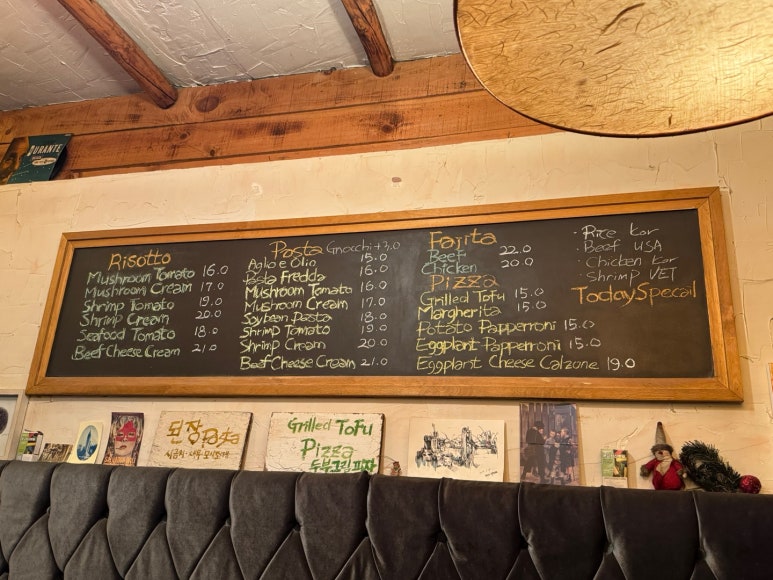 DURANTE
Risotto
Mushroom Tomato 16.0
Mushroom Cream 17.0
Shrimp Tomato 19.0
Shrimp Cream 20.0
Seafood Tomato 18.0
Beef Cheese Cream 21.0
Pasta Gnocchi +3.0
Aglio e Olio 15.0
Pasta Fredda 16.0
Mushroom Tomato 16.0
Mushroom Cream 17.0
Soybean Pasta 18.0
Shrimp Tomato 19.0
Shrimp Cream 20.0
Beef Cheese Cream 21.0
Fajita
Beef 22.0
Chicken 20.0
Pizza
Grilled Tofu 15.0
Margherita 15.0
Potato Papperroni 15.0
Eggplant Papperroni 15.0
Eggplant Cheese Calzone 19.0
· Rice Kor
· Beef USA
· Chicken Kor
· Shrimp VET
Today Specail
된장 Pasta
Grilled ToFu
Pizza
두부그릴피자